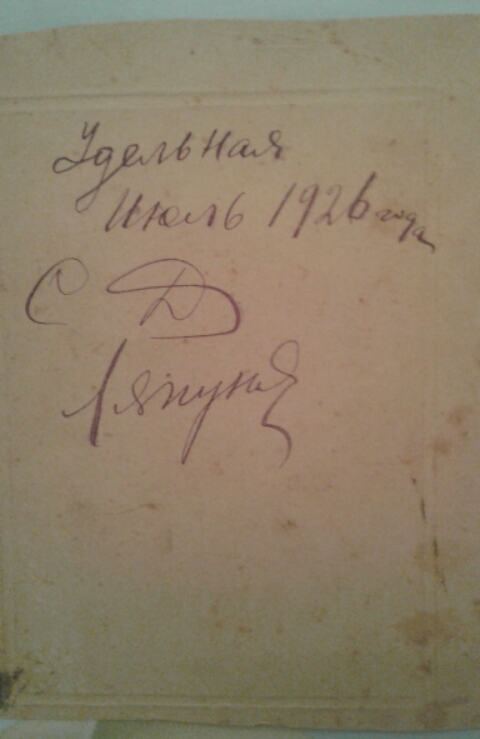 Удельная
Июль 1926 года
С Д
Ляпуная